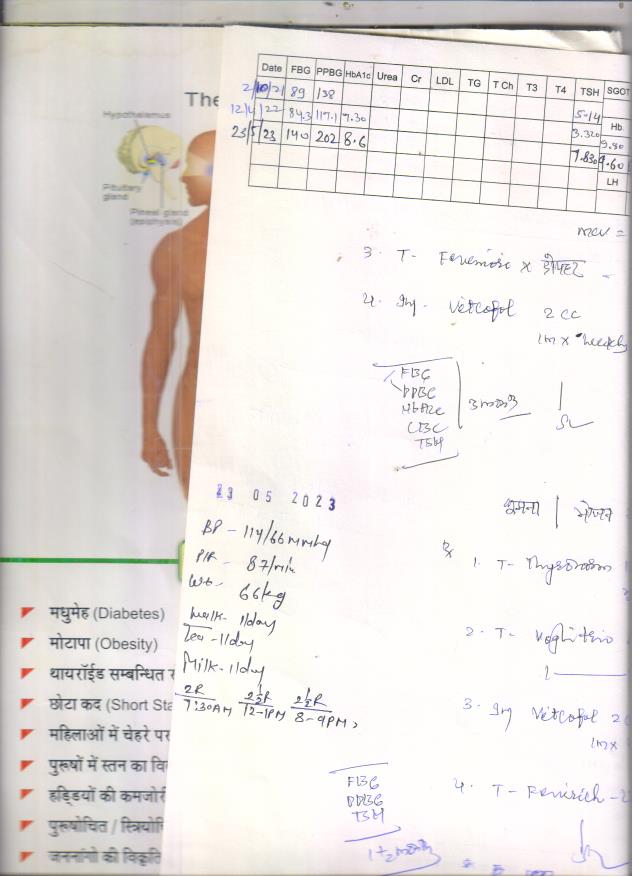 The
Hypothelemus
Pituitary
gland
Pineal gland
(epiphysis)
Date FBG PPBG HbA1c Urea Cr LDL TG T Ch T3 T4 TSH SGOT
2/10/21 89 138 5.14
12/4/22 84.3 117.1 7.30 3.320 Hb 9.80
23/5/23 140 202 8.6 7.830 9.60
LH
mcv =
3. T-
4. Inj- Vitcofol 2cc
1m x weekly
FBG
PPBG
HbA1c
CBC
TSH
3 month
23 05 2023
BP - 114/66 mmHg
P/R - 87/min
Wt- 66kg
Walk- 1/day
Tea - 1/day
Milk- 1/day
2R 2½R 2½R
7:30AM 12-1PM 8-9PM
घूमना | भोजन
Rx
1. T- Thyronorm
2. T-
3. Inj Vitcofol 2
1m x
4. T-
FBG
PPBG
TSH
मधुमेह (Diabetes)
मोटापा (Obesity)
थायरॉईड सम्बन्धित
छोटा कद (Short Sta
महिलाओं में चेहरे पर
पुरूषों में स्तन का वि
हड्डियों की कमजोरी
पुरूषोचित / स्त्रियोचि
जननांगो की विकृति